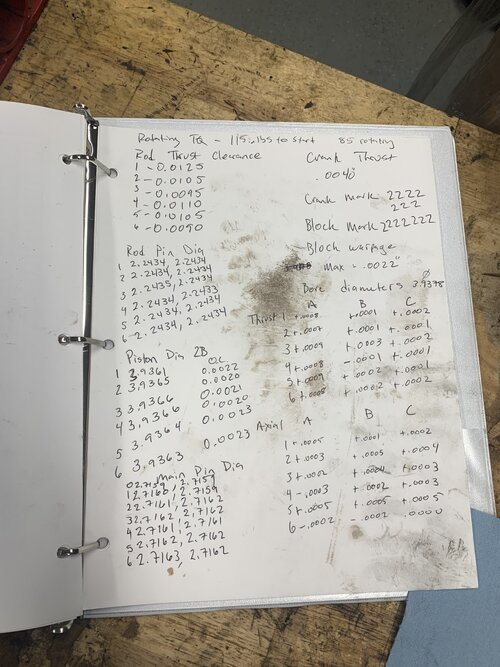 Rotating TQ - 115 in lbs to start 85 rotating
Rod Thrust Clearance
1 - 0.0125
2 - 0.0105
3 - 0.0095
4 - 0.0110
5 - 0.0105
6 - 0.0090
Crank Thrust
.0040"
Crank Mark 2222
222
Block Mark 2222222
Block warpage
Max - .0022"
Bore diameters 3.9378
Rod Pin Dia
1 2.2434, 2.2434
2 2.2434, 2.2434
3 2.2435, 2.2434
4 2.2434, 2.2433
5 2.2434, 2.2434
6 - 2.2434, 2.2434
A B C
Thrust 1 +.0008 +.0001 +.0002
2 +.0007 +.0001 +.0001
3 +.0009 +.0003 +.0002
4 +.0008 -.0001 +.0001
5 +.0007 +.0002 +.0001
6 +.0008 +.0002 +.0002
Piston Dia 2B OC
1 3.9361 0.0022
2 3.9365 0.0020
3 3.9366 0.0021
4 3.9366 0.0020
5 3.9364 0.0023
6 3.9363 0.0023
Axial A B C
1 +.0005 +.0001 +.0002
2 +.0003 +.0005 +.0004
3 +.0002 +.0003
4 -.0003 +.0002 +.0003
5 +.0005 +.0005 +.0005
6 -.0002 -.0002 .0000
Main Pin Dia
0 2.7159, 2.7159
1 2.7160, 2.7159
2 2.7161, 2.7162
3 2.7162, 2.7162
4 2.7161, 2.7161
5 2.7162, 2.7162
6 2.7163, 2.7162